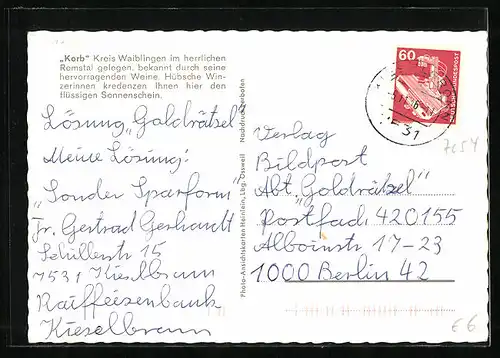 „Korb“ Kreis Waiblingen im herrlichen
Remstal gelegen, bekannt durch seine
hervorragenden Weine. Hübsche Win-
zerinnen kredenzen Ihnen hier den
flüssigen Sonnenschein.
Lösung „Goldrätsel“
Meine Lösung:
„Sonder Sparform“
Fr. Gertrad Gerhardt
Schillerstr 15
7531 Kieselbronn
Raiffeisenbank
Kieselbronn
Photo-Ansichtskarten Heinlein, Lbg.-Ossweil
Nachdruck verboten
60
DEUTSCHE BUNDESPOST
31
7054
Verlag
Bildpost
Abt. „Goldrätsel“
Postfach 420155
Alboinstr 17-23
1000 Berlin 42
€ 6